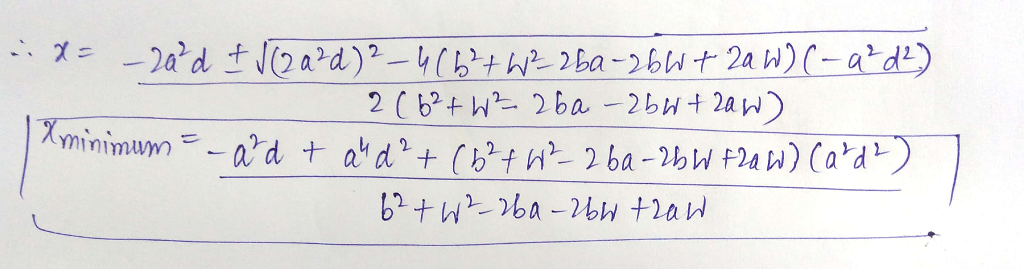 ∴ x = -2a²d ± √(2a²d)² - 4(b²+W²-2ba-2bW+2aW)(-a²d²)
2(b²+W²-2ba-2bW+2aW)
xminimum = -a²d + a⁴d² + (b²+W²-2ba-2bW+2aW)(a²d²)
b²+W²-2ba-2bW+2aW